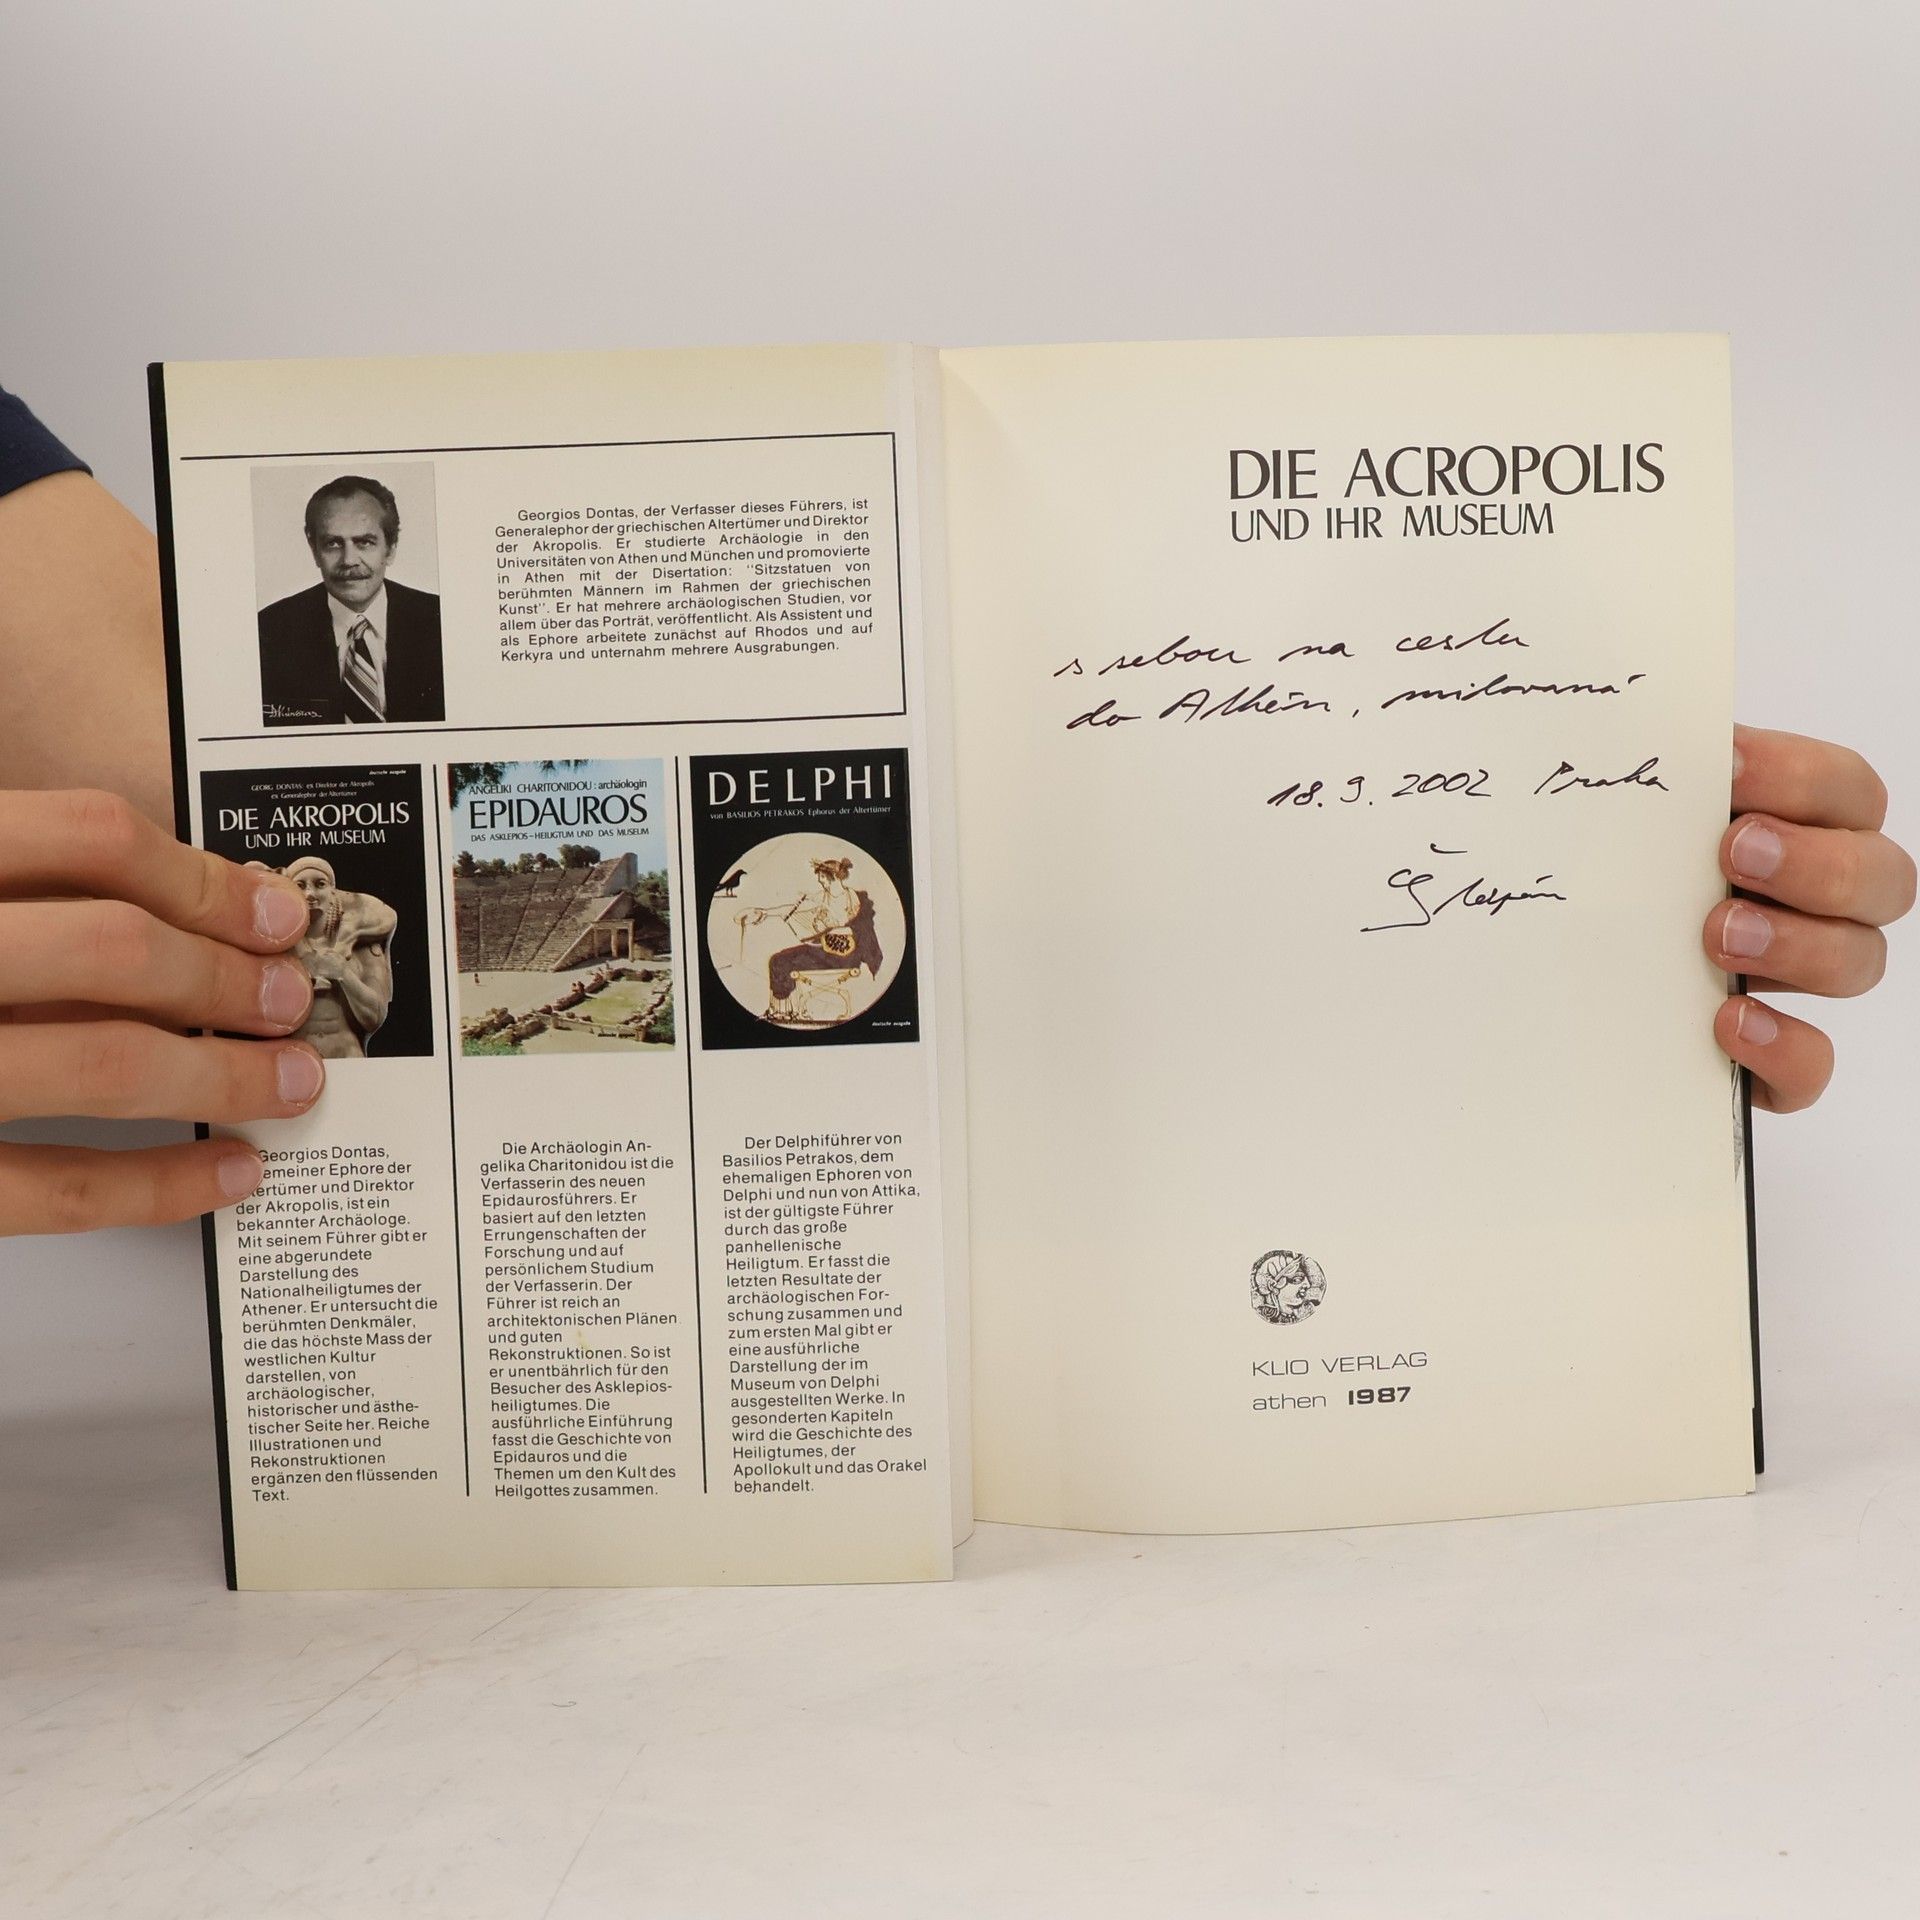 Georgios Dontas, der Verfasser dieses Führers, ist
Generalephor der griechischen Altertümer und Direktor
der Akropolis. Er studierte Archäologie in den
Universitäten von Athen und München und promovierte
in Athen mit der Disertation: "Sitzstatuen von
berühmten Männern im Rahmen der griechischen
Kunst". Er hat mehrere archäologischen Studien, vor
allem über das Porträt, veröffentlicht. Als Assistent und
als Ephore arbeitete zunächst auf Rhodos und auf
Kerkyra und unternahm mehrere Ausgrabungen.
deutsche ausgabe
GEORG DONTAS: ex Direktor der Akropolis
ex Generalephor der Altertümer
DIE AKROPOLIS
UND IHR MUSEUM
ANGELIKI CHARITONIDOU: archäologin
EPIDAUROS
DAS ASKLEPIOS-HEILIGTUM UND DAS MUSEUM
DELPHI
von BASILIOS PETRAKOS Ephorus der Altertümer
deutsche ausgabe
Georgios Dontas,
emeiner Ephore der
ertümer und Direktor
der Akropolis, ist ein
bekannter Archäologe.
Mit seinem Führer gibt er
eine abgerundete
Darstellung des
Nationalheiligtumes der
Athener. Er untersucht die
berühmten Denkmäler,
die das höchste Mass der
westlichen Kultur
darstellen, von
archäologischer,
historischer und ästhe-
tischer Seite her. Reiche
Illustrationen und
Rekonstruktionen
ergänzen den flüssenden
Text.
Die Archäologin An-
gelika Charitonidou ist die
Verfasserin des neuen
Epidaurosführers. Er
basiert auf den letzten
Errungenschaften der
Forschung und auf
persönlichem Studium
der Verfasserin. Der
Führer ist reich an
architektonischen Plänen
und guten
Rekonstruktionen. So ist
er unentbährlich für den
Besucher des Asklepios-
heiligtumes. Die
ausführliche Einführung
fasst die Geschichte von
Epidauros und die
Themen um den Kult des
Heilgottes zusammen.
Der Delphiführer von
Basilios Petrakos, dem
ehemaligen Ephoren von
Delphi und nun von Attika,
ist der gültigste Führer
durch das große
panhellenische
Heiligtum. Er fasst die
letzten Resultate der
archäologischen For-
schung zusammen und
zum ersten Mal gibt er
eine ausführliche
Darstellung der im
Museum von Delphi
ausgestellten Werke. In
gesonderten Kapiteln
wird die Geschichte des
Heiligtumes, der
Apollokult und das Orakel
behandelt.
DIE ACROPOLIS
UND IHR MUSEUM
s sebou na cestu
do Athén, milovaná
18. 9. 2002 Praha
Štěpán
KLIO VERLAG
athen 1987